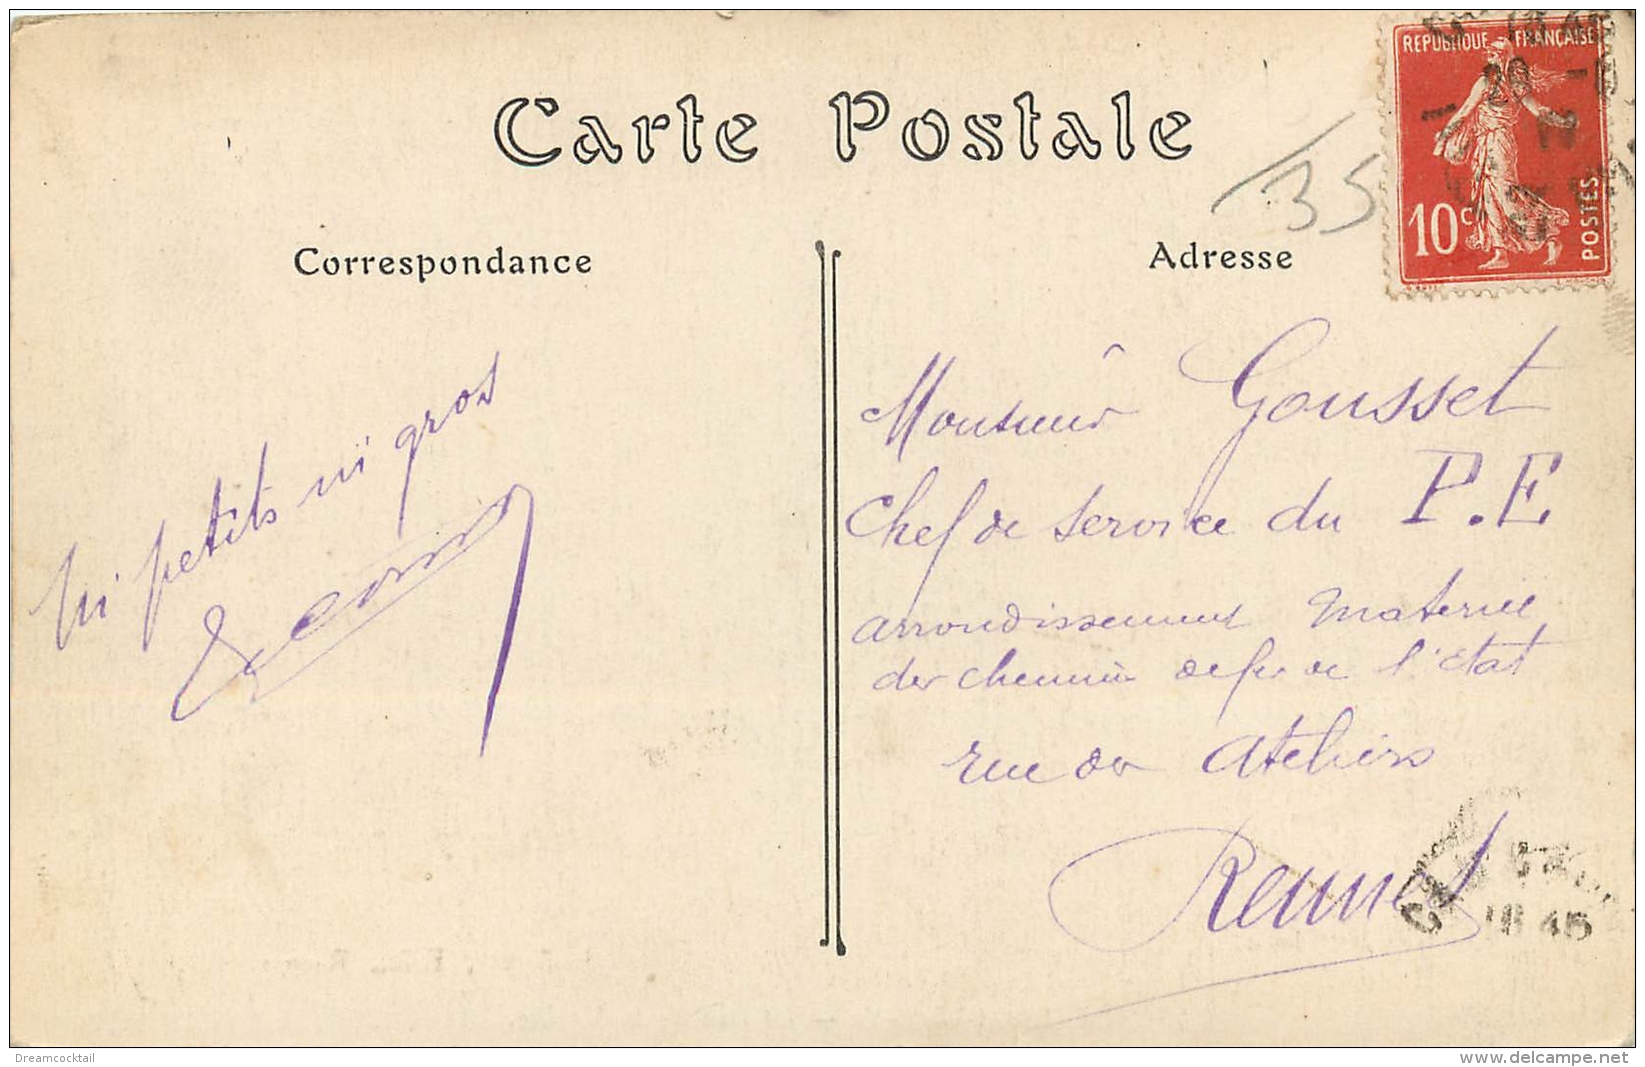 Carte Postale
RÉPUBLIQUE FRANÇAISE
10c
POSTES
35
Correspondance
Adresse
Ni petits ni gros
Monsieur Gousset
Chef de Service du P.E
arrondissement Materiel
des chemins de fer de l'Etat
rue des Ateliers
Rennes
18 45
Dreamcocktail
www.delcampe.net